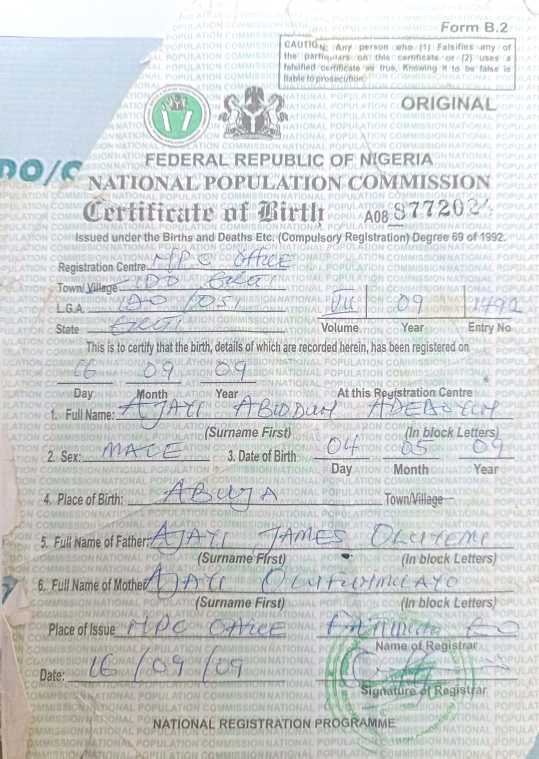 Form B.2
CAUTION: Any person who (1) Falsifies any of
the particulars on this certificate or (2) uses a
falsified certificate as true, Knowing it to be false is
liable to prosecution.
ORIGINAL
DO/
FEDERAL REPUBLIC OF NIGERIA
NATIONAL POPULATION COMMISSION
Certificate of Birth A08
Issued under the Births and Deaths Etc. (Compulsory Registration) Degree 69 of 1992.
Registration Centre NPC OFFICE
Town/Village IDO EKITI
L.G.A. IDO/OSI VII 09 1492
State EKITI Volume Year Entry No
This is to certify that the birth, details of which are recorded herein, has been registered on
16 09 09
Day Month Year At this Registration Centre
1. Full Name: AJAYI ABIODUN
(Surname First) (In block Letters)
2. Sex: MALE 3. Date of Birth 04 05 09
Day Month Year
4. Place of Birth: ABUJA Town/Village
5. Full Name of Father: AJAYI JAMES OLUYEMI
(Surname First) (In block Letters)
6. Full Name of Mother AJAYI
(Surname First) (In block Letters)
Place of Issue NPC OFFICE
Name of Registrar
Date: 16/09/09
Signature of Registrar
NATIONAL REGISTRATION PROGRAMME